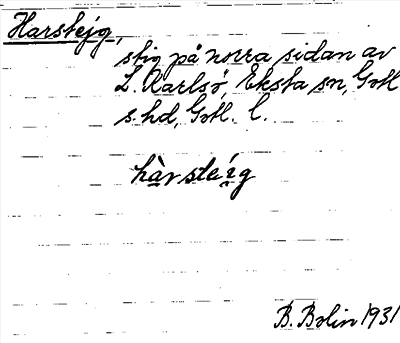 Harstejg,
stig på norra sidan av
L. Karlsö, Eksta sn, Gotl
s. hd, Gotl. l.
hàrstéig
B. Bolin 1931